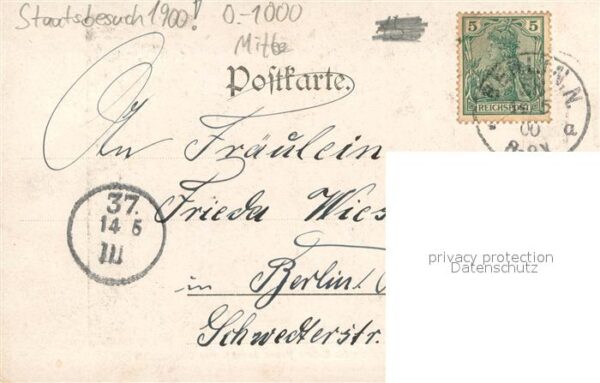 Staatsbesuch 1900! 0-1000
Mitte
Postkarte.
5 5
REICHSPOST
BERLIN, N.
00
An Fräulein
Frieda Wies
in Berlin
Schwedterstr.
37.
14 5
III
privacy protection
Datenschutz